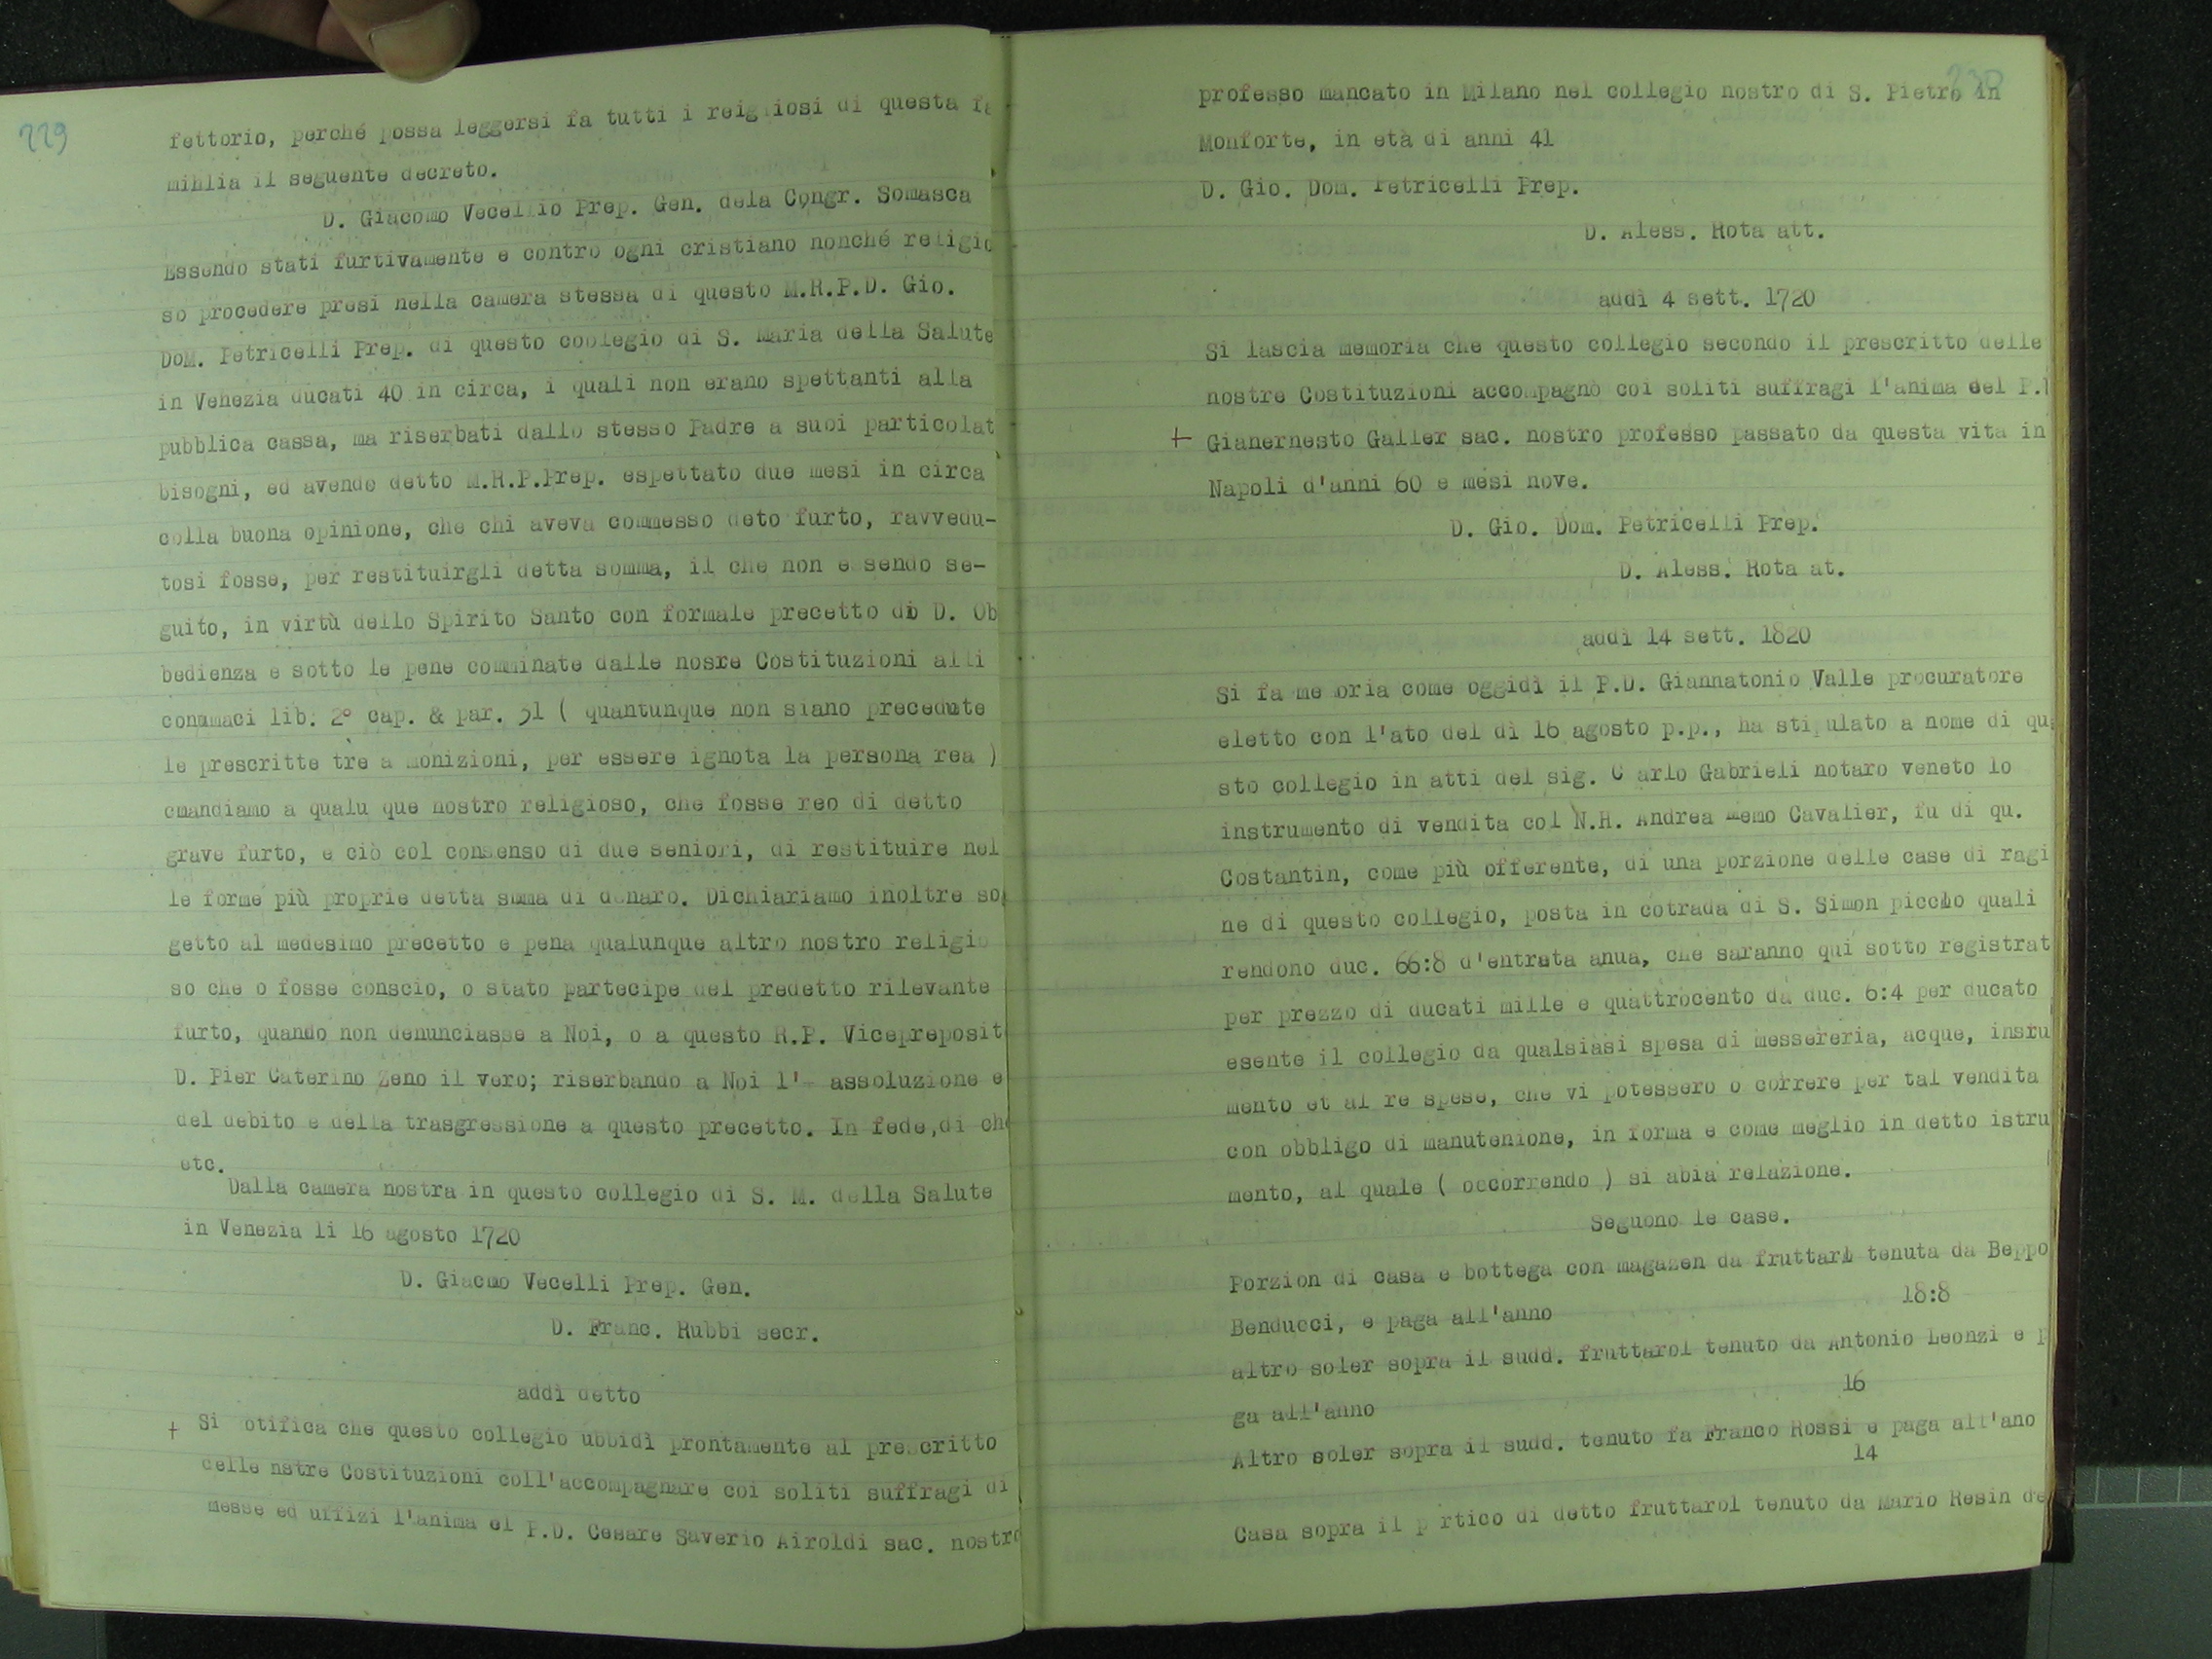 229
fettorio, perché possa leggersi fa tutti i reigliosi di questa fa
mihlia il seguente decreto.
D. Giacomo Vecellio Prep. Gen. dela Congr. Somasca
Essendo stati furtivamente e contro ogni cristiano nonché religio
so procedere presi nella camera stessa di questo M.R.P.D. Gio.
DoM. Petricelli Prep. di questo coolegio di S. Maria della Salute
in Venezia ducati 40 in circa, i quali non erano spettanti alla
pubblica cassa, ma riserbati dallo stesso Padre a suoi particolat
bisogni, ed avendo detto M.R.P.Prep. espettato due mesi in circa
colla buona opinione, che chi aveva commesso deto furto, ravvedu-
tosi fosse, per restituirgli detta somma, il che non e sendo se-
guito, in virtù dello Spirito Santo con formale precetto di D. Ob
bedienza e sotto le pene comminate dalle nosre Costituzioni alli
conumaci lib. 2° cap. & par. 31 ( quantunque non siano precedute
le prescritte tre a monizioni, per essere ignota la persona rea )
cmandiamo a qualu que nostro religioso, che fosse reo di detto
grave furto, e ciò col consenso di due seniori, di restituire nel
le forme più proprie detta smma di denaro. Dichiariamo inoltre sog
getto al medesimo precetto e pena qualunque altro nostro religio
so che o fosse conscio, o stato partecipe del predetto rilevante
furto, quando non denunciasse a Noi, o a questo R.P. Vicepreposit
D. Pier Caterino Zeno il vero; riserbando a Noi l'- assoluzione e
del debito e della trasgressione a questo precetto. In fede,di che
etc.
Dalla camera nostra in questo collegio di S. M. della Salute
in Venezia li 16 agosto 1720
D. Giacmo Vecelli Prep. Gen.
D. Franc. Rubbi secr.
addì detto
+ Si otifica che questo collegio ubbidì prontamente al prescritto
delle nstre Costituzioni coll'accompagnare coi soliti suffragi di
messe ed uffizi l'anima el P.D. Cesare Saverio Airoldi sac. nostro
professo mancato in Milano nel collegio nostro di S. Pietro in
Monforte, in età di anni 41
D. Gio. Dom. Petricelli Prep.
D. Aless. Rota att.
addì 4 sett. 1720
Si lascia memoria che questo collegio secondo il prescritto delle
nostre Costituzioni accompagnò coi soliti suffragi l'anima del P.
+ Gianernesto Galler sac. nostro professo passato da questa vita in
Napoli d'anni 60 e mesi nove.
D. Gio. Dom. Petricelli Prep.
D. Aless. Rota at.
addì 14 sett. 1820
Si fa me oria come oggidì il P.D. Giannatonio Valle procuratore
eletto con l'ato del dì 16 agosto p.p., ha stipulato a nome di qu
sto collegio in atti del sig. C arlo Gabrieli notaro veneto lo
instrumento di vendita col N.H. Andrea Memo Cavalier, fu di qu.
Costantin, come più offerente, di una porzione delle case di ragi
ne di questo collegio, posta in cotrada di S. Simon piccolo quali
rendono duc. 66:8 d'entrata anua, che saranno qui sotto registrat
per prezzo di ducati mille e quattrocento da duc. 6:4 per ducato
esente il collegio da qualsiasi spesa di messereria, acque, insru
mento et al re spese, che vi potessero o correre per tal vendita
con obbligo di manutenione, in forma e come meglio in detto istru
mento, al quale ( occorrendo ) si abia relazione.
Seguono le case.
Porzion di casa e bottega con magazen da fruttarl tenuta da Beppo
Benducci, e paga all'anno 18:8
altro soler sopra il sudd. fruttarol tenuto da Antonio Leonzi e p
ga all'anno 16
Altro soler sopra il sudd. tenuto fa Franco Rossi e paga all'ano
14
Casa sopra il p rtico di detto fruttarol tenuto da Mario Resin de